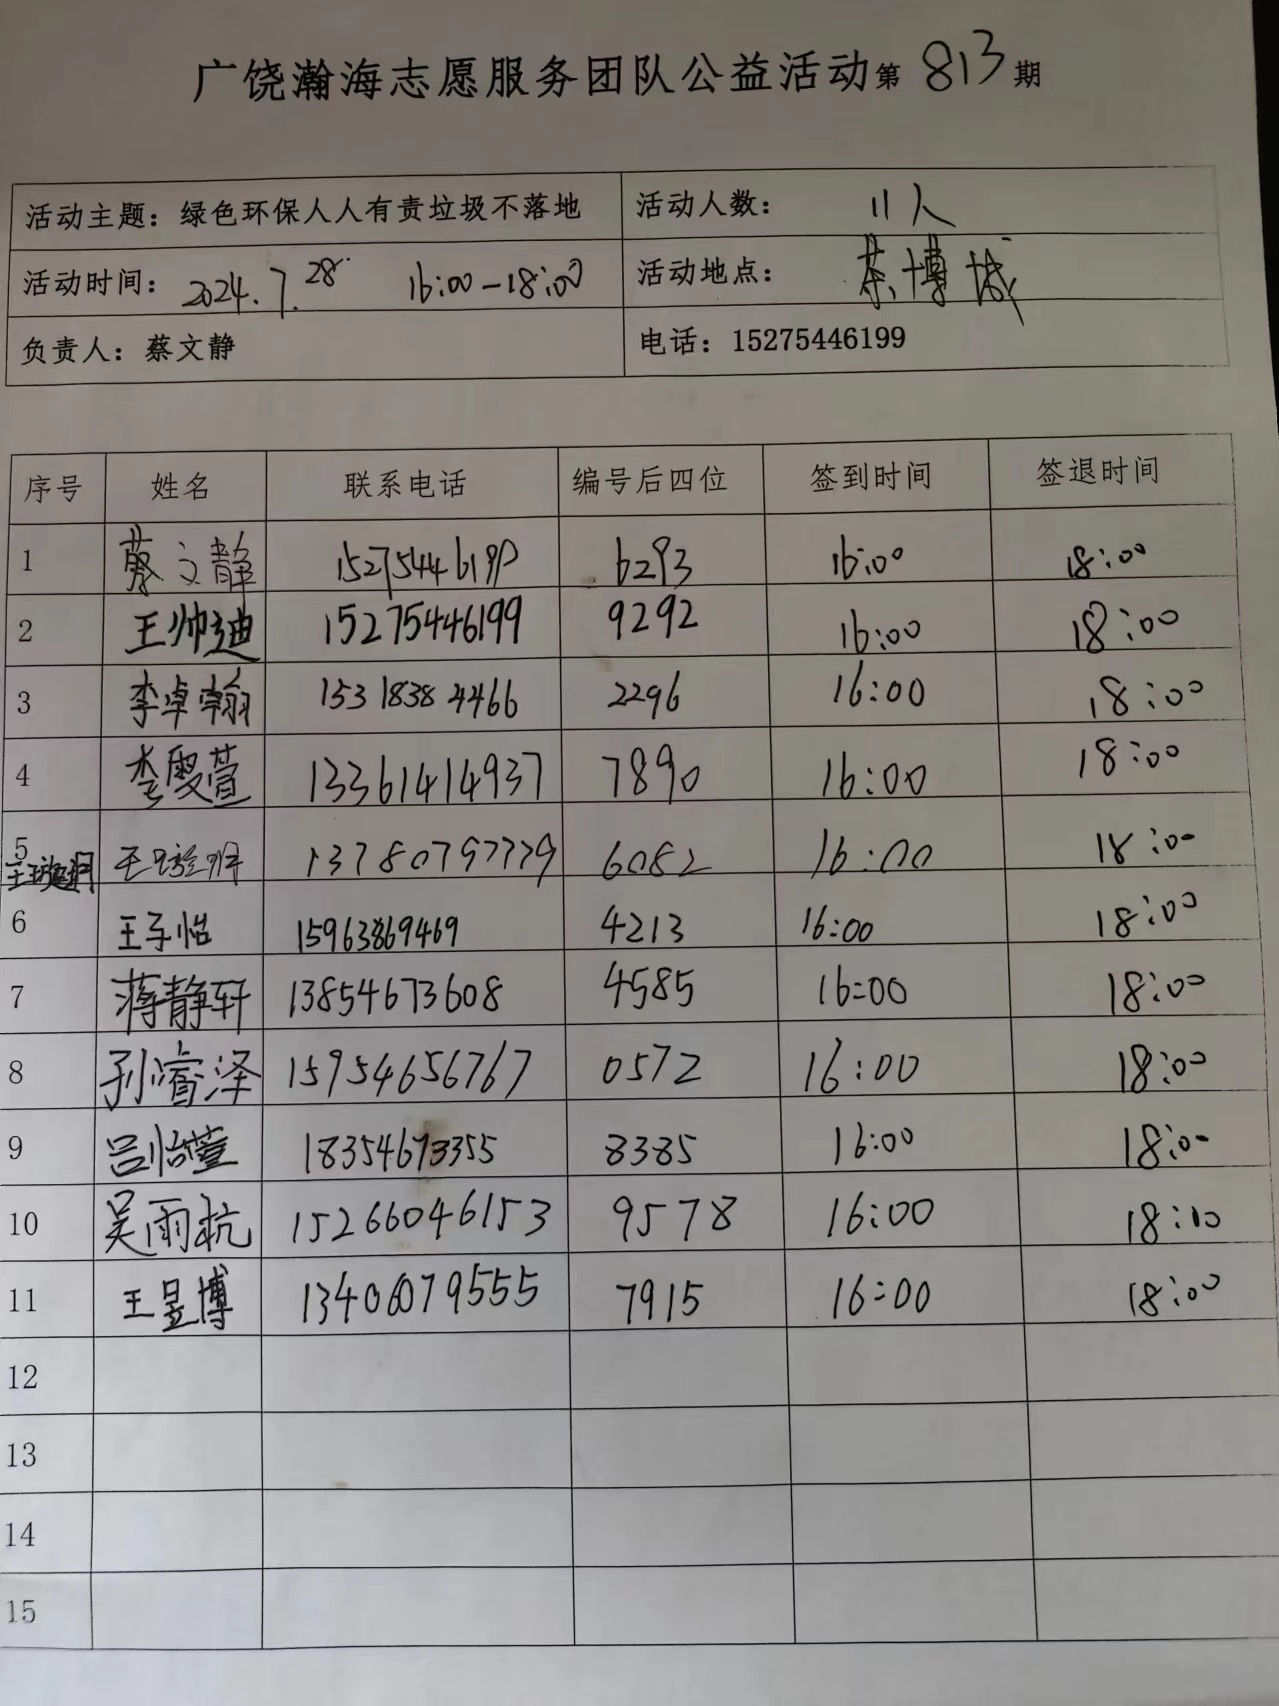 广饶瀚海志愿服务团队公益活动第813期
活动主题：绿色环保人人有责垃圾不落地 活动人数： 11人
活动时间：2024.7.28 16:00-18:00 活动地点：茶博城
负责人：蔡文静 电话：15275446199
序号 姓名 联系电话 编号后四位 签到时间 签退时间
1 蔡文静 15275446199 6293 16:00 18:00
2 王帅迪 15275446199 9292 16:00 18:00
3 李卓翰 15318384466 2296 16:00 18:00
4 李雯萱 13361414937 7890 16:00 18:00
5 13780797779 6082 16:00 18:00
6 王子怡 15963869469 4213 16:00 18:00
7 蒋静轩 13854673608 4585 16:00 18:00
8 孙睿泽 15954656767 0572 16:00 18:00
9 吕怡萱 18354673355 8385 16:00 18:00
10 吴雨杭 15266046153 9578 16:00 18:10
11 王昱博 13406079555 7915 16:00 18:00
12
13
14
15